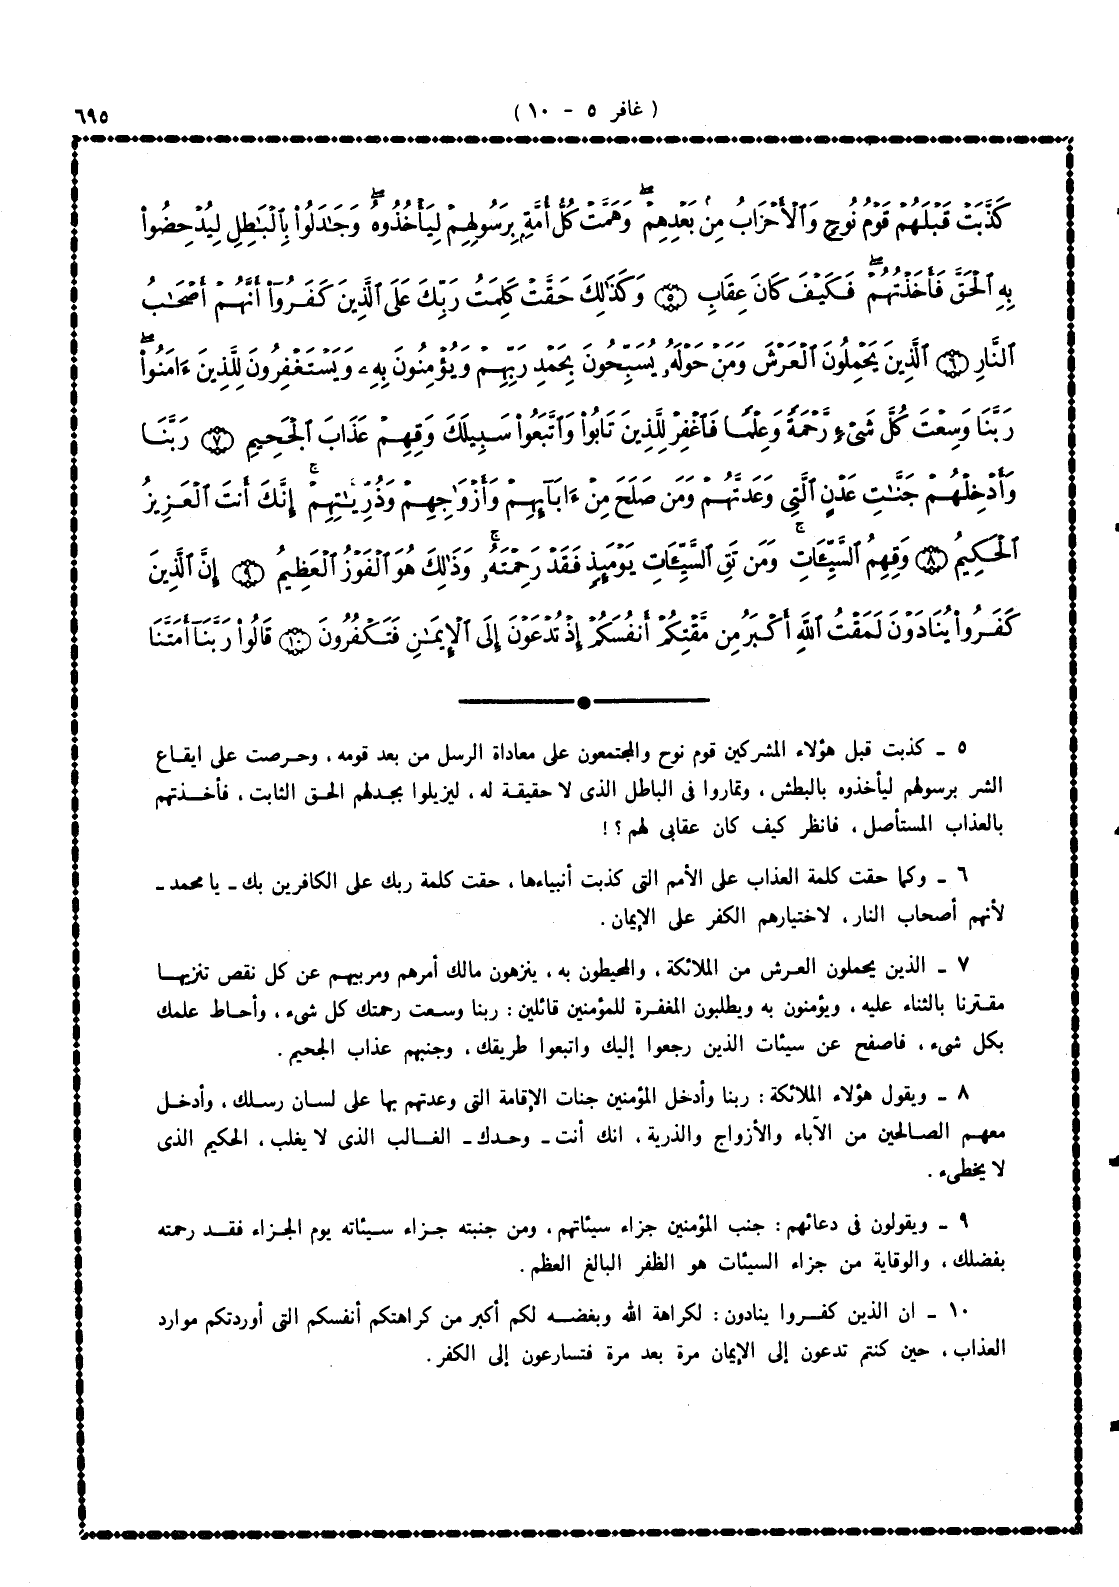 ( غافر ٥ - ١٠ )
٦٩٥
كَذَّبَتْ قَبْلَهُمْ قَوْمُ نُوحٍ وَٱلْأَحْزَابُ مِنۢ بَعْدِهِمْ ۖ وَهَمَّتْ كُلُّ أُمَّةٍۭ بِرَسُولِهِمْ لِيَأْخُذُوهُ ۖ وَجَٰدَلُوا۟ بِٱلْبَٰطِلِ لِيُدْحِضُوا۟
بِهِ ٱلْحَقَّ فَأَخَذْتُهُمْ ۖ فَكَيْفَ كَانَ عِقَابِ ۝٥ وَكَذَٰلِكَ حَقَّتْ كَلِمَتُ رَبِّكَ عَلَى ٱلَّذِينَ كَفَرُوٓا۟ أَنَّهُمْ أَصْحَٰبُ
ٱلنَّارِ ۝٦ ٱلَّذِينَ يَحْمِلُونَ ٱلْعَرْشَ وَمَنْ حَوْلَهُۥ يُسَبِّحُونَ بِحَمْدِ رَبِّهِمْ وَيُؤْمِنُونَ بِهِۦ وَيَسْتَغْفِرُونَ لِلَّذِينَ ءَامَنُوا۟ ۖ
رَبَّنَا وَسِعْتَ كُلَّ شَىْءٍ رَّحْمَةً وَعِلْمًا فَٱغْفِرْ لِلَّذِينَ تَابُوا۟ وَٱتَّبَعُوا۟ سَبِيلَكَ وَقِهِمْ عَذَابَ ٱلْجَحِيمِ ۝٧ رَبَّنَا
وَأَدْخِلْهُمْ جَنَّٰتِ عَدْنٍ ٱلَّتِى وَعَدتَّهُمْ وَمَن صَلَحَ مِنْ ءَابَآئِهِمْ وَأَزْوَٰجِهِمْ وَذُرِّيَّٰتِهِمْ ۚ إِنَّكَ أَنتَ ٱلْعَزِيزُ
ٱلْحَكِيمُ ۝٨ وَقِهِمُ ٱلسَّيِّـَٔاتِ ۚ وَمَن تَقِ ٱلسَّيِّـَٔاتِ يَوْمَئِذٍ فَقَدْ رَحِمْتَهُۥ ۚ وَذَٰلِكَ هُوَ ٱلْفَوْزُ ٱلْعَظِيمُ ۝٩ إِنَّ ٱلَّذِينَ
كَفَرُوا۟ يُنَادَوْنَ لَمَقْتُ ٱللَّهِ أَكْبَرُ مِن مَّقْتِكُمْ أَنفُسَكُمْ إِذْ تُدْعَوْنَ إِلَى ٱلْإِيمَٰنِ فَتَكْفُرُونَ ۝١٠ قَالُوا۟ رَبَّنَآ أَمَتَّنَا
٥ ـ كذبت قبل هؤلاء المشركين قوم نوح والمجتمعون على معاداة الرسل من بعد قومه ، وحرصت على ايقاع
الشر برسولهم ليأخذوه بالبطش ، وتماروا فى الباطل الذى لا حقيقة له ، ليزيلوا بجدلهم الحق الثابت ، فأخذتهم
بالعذاب المستأصل ، فانظر كيف كان عقابى لهم ؟ !
٦ ـ وكما حقت كلمة العذاب على الأمم التى كذبت أنبياءها ، حقت كلمة ربك على الكافرين بك ـ يا محمد ـ
لأنهم أصحاب النار ، لاختيارهم الكفر على الإيمان .
٧ ـ الذين يحملون العرش من الملائكة ، والمحيطون به ، ينزهون مالك أمرهم ومربيهم عن كل نقص تنزيها
مقترنا بالثناء عليه ، ويؤمنون به ويطلبون المغفرة للمؤمنين قائلين : ربنا وسعت رحمتك كل شىء ، وأحاط علمك
بكل شىء ، فاصفح عن سيئات الذين رجعوا إليك واتبعوا طريقك ، وجنبهم عذاب الجحيم .
٨ ـ ويقول هؤلاء الملائكة : ربنا وأدخل المؤمنين جنات الإقامة التى وعدتهم بها على لسان رسلك ، وأدخل
معهم الصالحين من الآباء والأزواج والذرية ، انك أنت ـ وحدك ـ الغالب الذى لا يغلب ، الحكيم الذى
لا يخطىء .
٩ ـ ويقولون فى دعائهم : جنب المؤمنين جزاء سيئاتهم ، ومن جنبته جزاء سيئاته يوم الجزاء فقد رحمته
بفضلك ، والوقاية من جزاء السيئات هو الظفر البالغ العظم .
١٠ ـ ان الذين كفروا ينادون : لكراهة الله وبغضه لكم أكبر من كراهتكم أنفسكم التى أوردتكم موارد
العذاب ، حين كنتم تدعون إلى الإيمان مرة بعد مرة فتسارعون إلى الكفر .